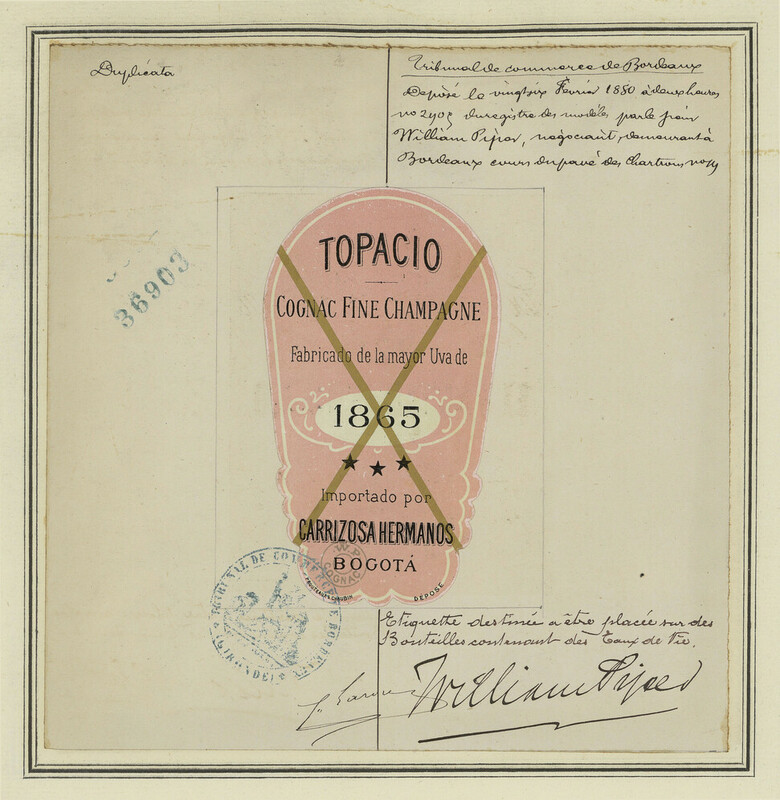 Duplicata
Tribunal de commerce de Bordeaux
Déposé le vingtsix Février 1880 à deux heures
no 2905 du registre des modèles par le
William Pipar, négociant, demeurant à
Bordeaux cours du pavé des Chartrons no
36903
TOPACIO
COGNAC FINE CHAMPAGNE
Fabricado de la mayor Uva de
1865
Importado por
CARRIZOSA HERMANOS
BOGOTÁ
W.P.
COGNAC
DÉPOSÉ
TRIBUNAL DE COMMERCE BORDEAUX
(GIRONDE)
Etiquette destinée a être placée sur des
Bouteilles contenant des Eaux de Vie.
William